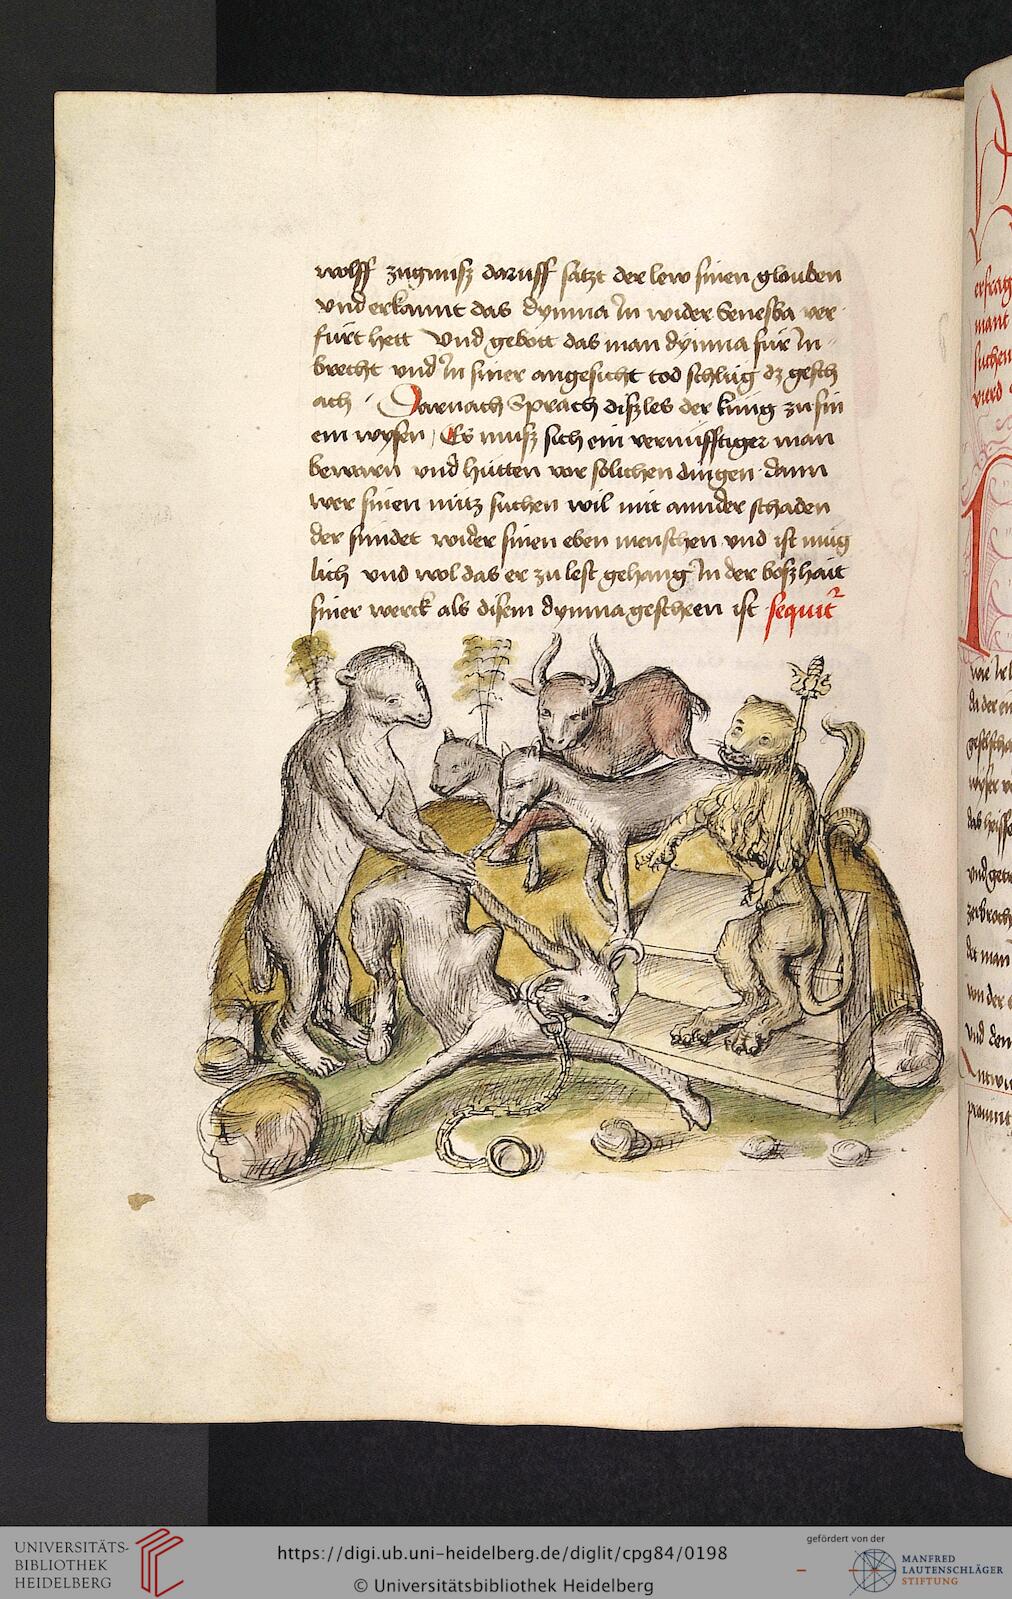 wolff zügnusz daruff satzt der lew sinen glouben
vnd erkannt das dymna in wider Senesba ver
fürt hett vnd gebott das man dymna für in
brecht vnd in siner angesicht tod schlüg dz gesch
ach Darnach Sprach diszles der kung zu sin
em wysen Es musz sich ein vernüfftiger man
bewarn vnd hütten vor sölichen dingen dann
wer sinen nütz suchen wil mit annder schaden
der sündet wider sinen eben menschen vnd ist müg
lich vnd wol das er zu lest gehang in der boszhait
siner werck als disem dymna gescheen ist sequit
erfrag
mant
suchen
wie
vnd
das man
von der
vnd den
UNIVERSITÄTS-
BIBLIOTHEK
HEIDELBERG
https://digi.ub.uni-heidelberg.de/diglit/cpg84/0198
© Universitätsbibliothek Heidelberg
gefördert von der
MANFRED
LAUTENSCHLÄGER
STIFTUNG